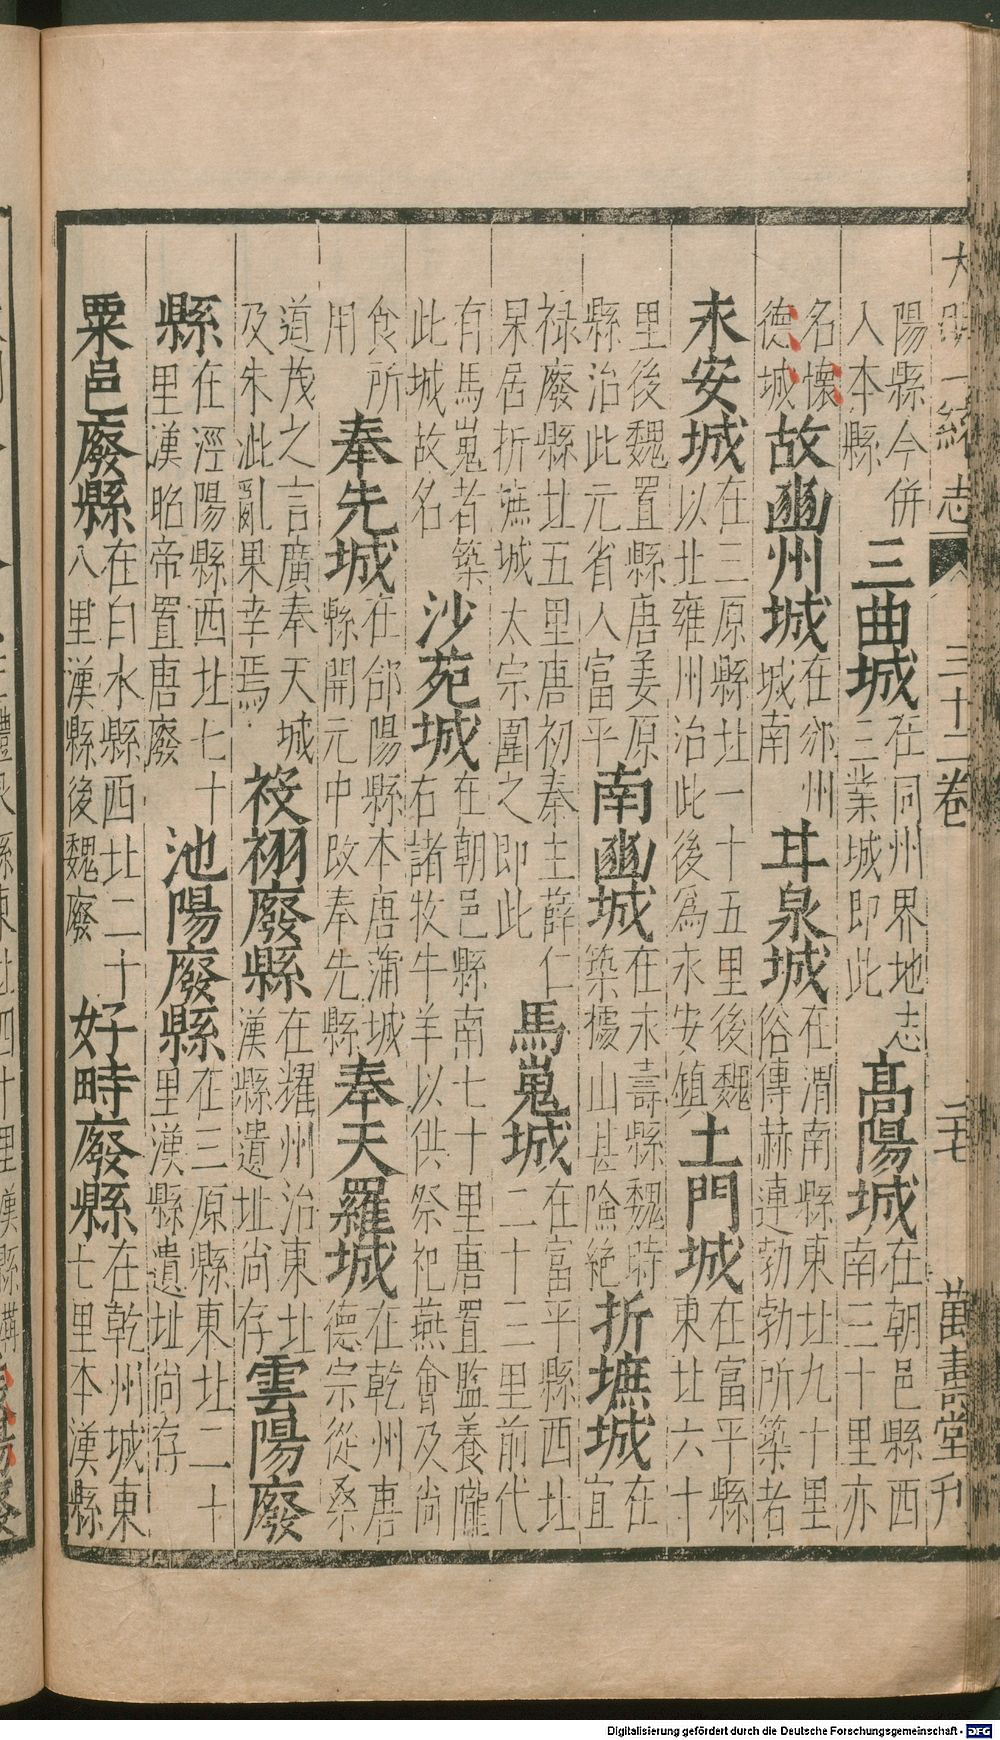 大明一統志 三十二卷 萬壽堂刊
陽縣今併入本縣三曲城在同州界地志三業城即此高陽城在朝邑縣西南三十里亦
名懷德城故豳州城在邠州城南甘泉城在渭南縣東北九十里俗傳赫連勃勃所築者
永安城在三原縣北一十五里後魏以北雍州治此後爲永安鎮土門城在富平縣東北六十
里後魏置縣唐姜原縣治此元省入富平南豳城在永壽縣魏時築據山甚險絕折墌城在宜
祿廢縣北五里唐初秦主薛仁杲居折墌城太宗圍之即此馬嵬城在富平縣西北二十三里前代
有馬嵬者築此城故名沙苑城在朝邑縣南七十里唐置監養隴右諸牧牛羊以供祭祀燕會及尚
食所用奉先城在郃陽縣本唐蒲城縣開元中改奉先縣奉天羅城在乾州唐德宗從桑
道茂之言廣奉天城及朱泚亂果幸焉祋祤廢縣在耀州治東北漢縣遺址尚存雲陽廢
縣在涇陽縣西北七十里漢昭帝置唐廢池陽廢縣在三原縣東北二十里漢縣遺址尚存
粟邑廢縣在白水縣西北二十八里漢縣後魏廢好畤廢縣在乾州城東七里本漢縣
Digitalisierung gefördert durch die Deutsche Forschungsgemeinschaft - DFG